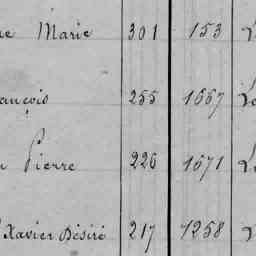 ne Marie 301 153
ançois 255 1667
Pierre 226 1671
Xavier Désiré 217 1258